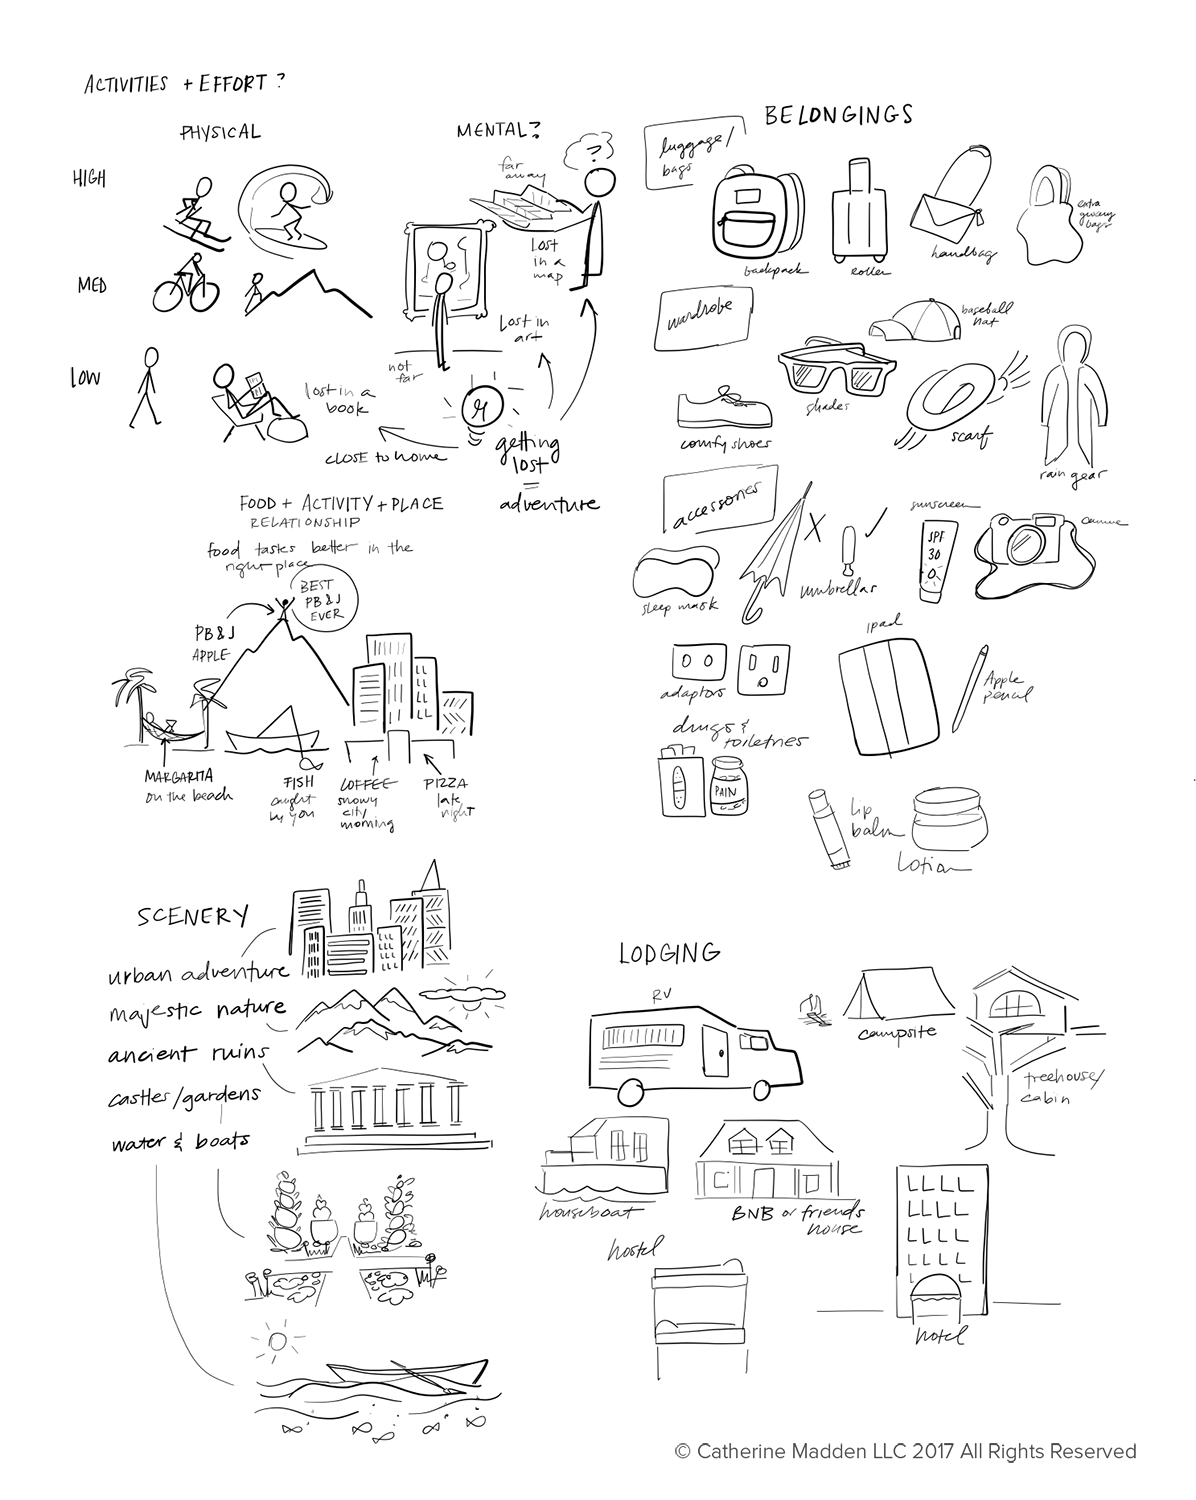 ACTIVITIES + EFFORT ?
PHYSICAL
MENTAL?
HIGH
MED
LOW
?
far
away
lost
in a
map
lost in
art
not
far
lost in a
book
CLOSE to home
getting
lost
=
adventure
FOOD + ACTIVITY + PLACE
RELATIONSHIP
food tastes better in the
right place
BEST
PB & J
EVER
PB & J
APPLE
MARGARITA
on the beach
FISH
caught
by you
COFFEE
snowy
city
morning
PIZZA
late
night
SCENERY
urban adventure
majestic nature
ancient ruins
castles/gardens
water & boats
BELONGINGS
luggage/
bags
backpack
roller
handbag
extra
grocery
bags
wardrobe
baseball
hat
shades
comfy shoes
scarf
rain gear
accessories
sleep mask
X
umbrellas
sunscreen
SPF
30
camera
adaptors
ipad
Apple
pencil
drugs &
toiletries
PAIN
lip
balm
lotion
LODGING
RV
campsite
treehouse/
cabin
houseboat
BNB or friends
house
hostel
hotel
© Catherine Madden LLC 2017 All Rights Reserved